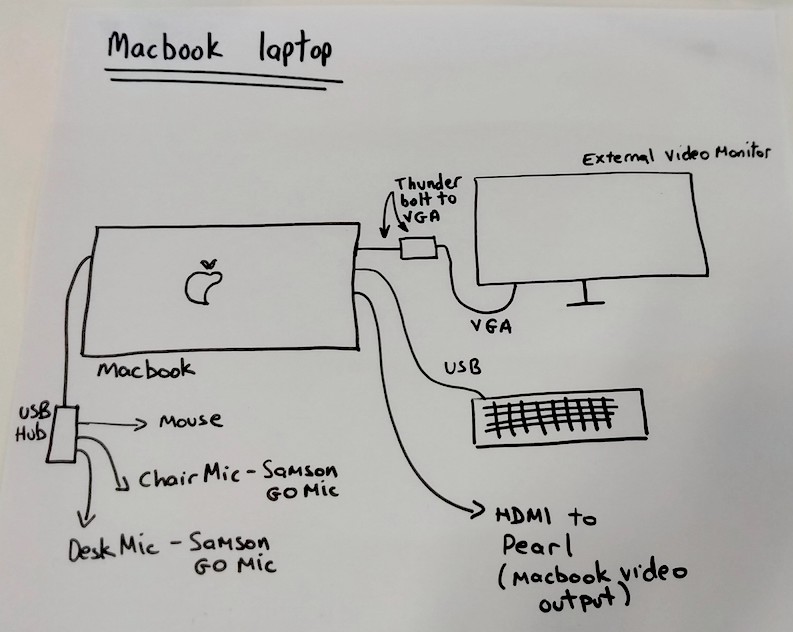 Macbook laptop
External Video Monitor
Thunder
bolt to
VGA
VGA
Macbook
USB
USB
Hub
Mouse
Chair Mic - Samson
GO Mic
Desk Mic - Samson
GO Mic
HDMI to
Pearl
(Macbook video
output)